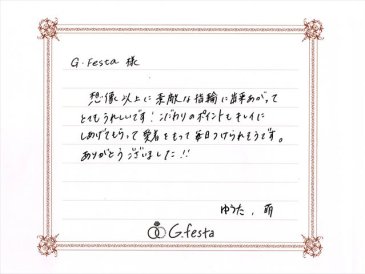 G.festa 様
想像以上に素敵な指輪に出来あがって
とてもうれしいです！こだわりのポイントもキレイに
しあげてもらって愛着をもって毎日つけられそうです。
ありがとうございました!!
ゆうた、萌
G.festa